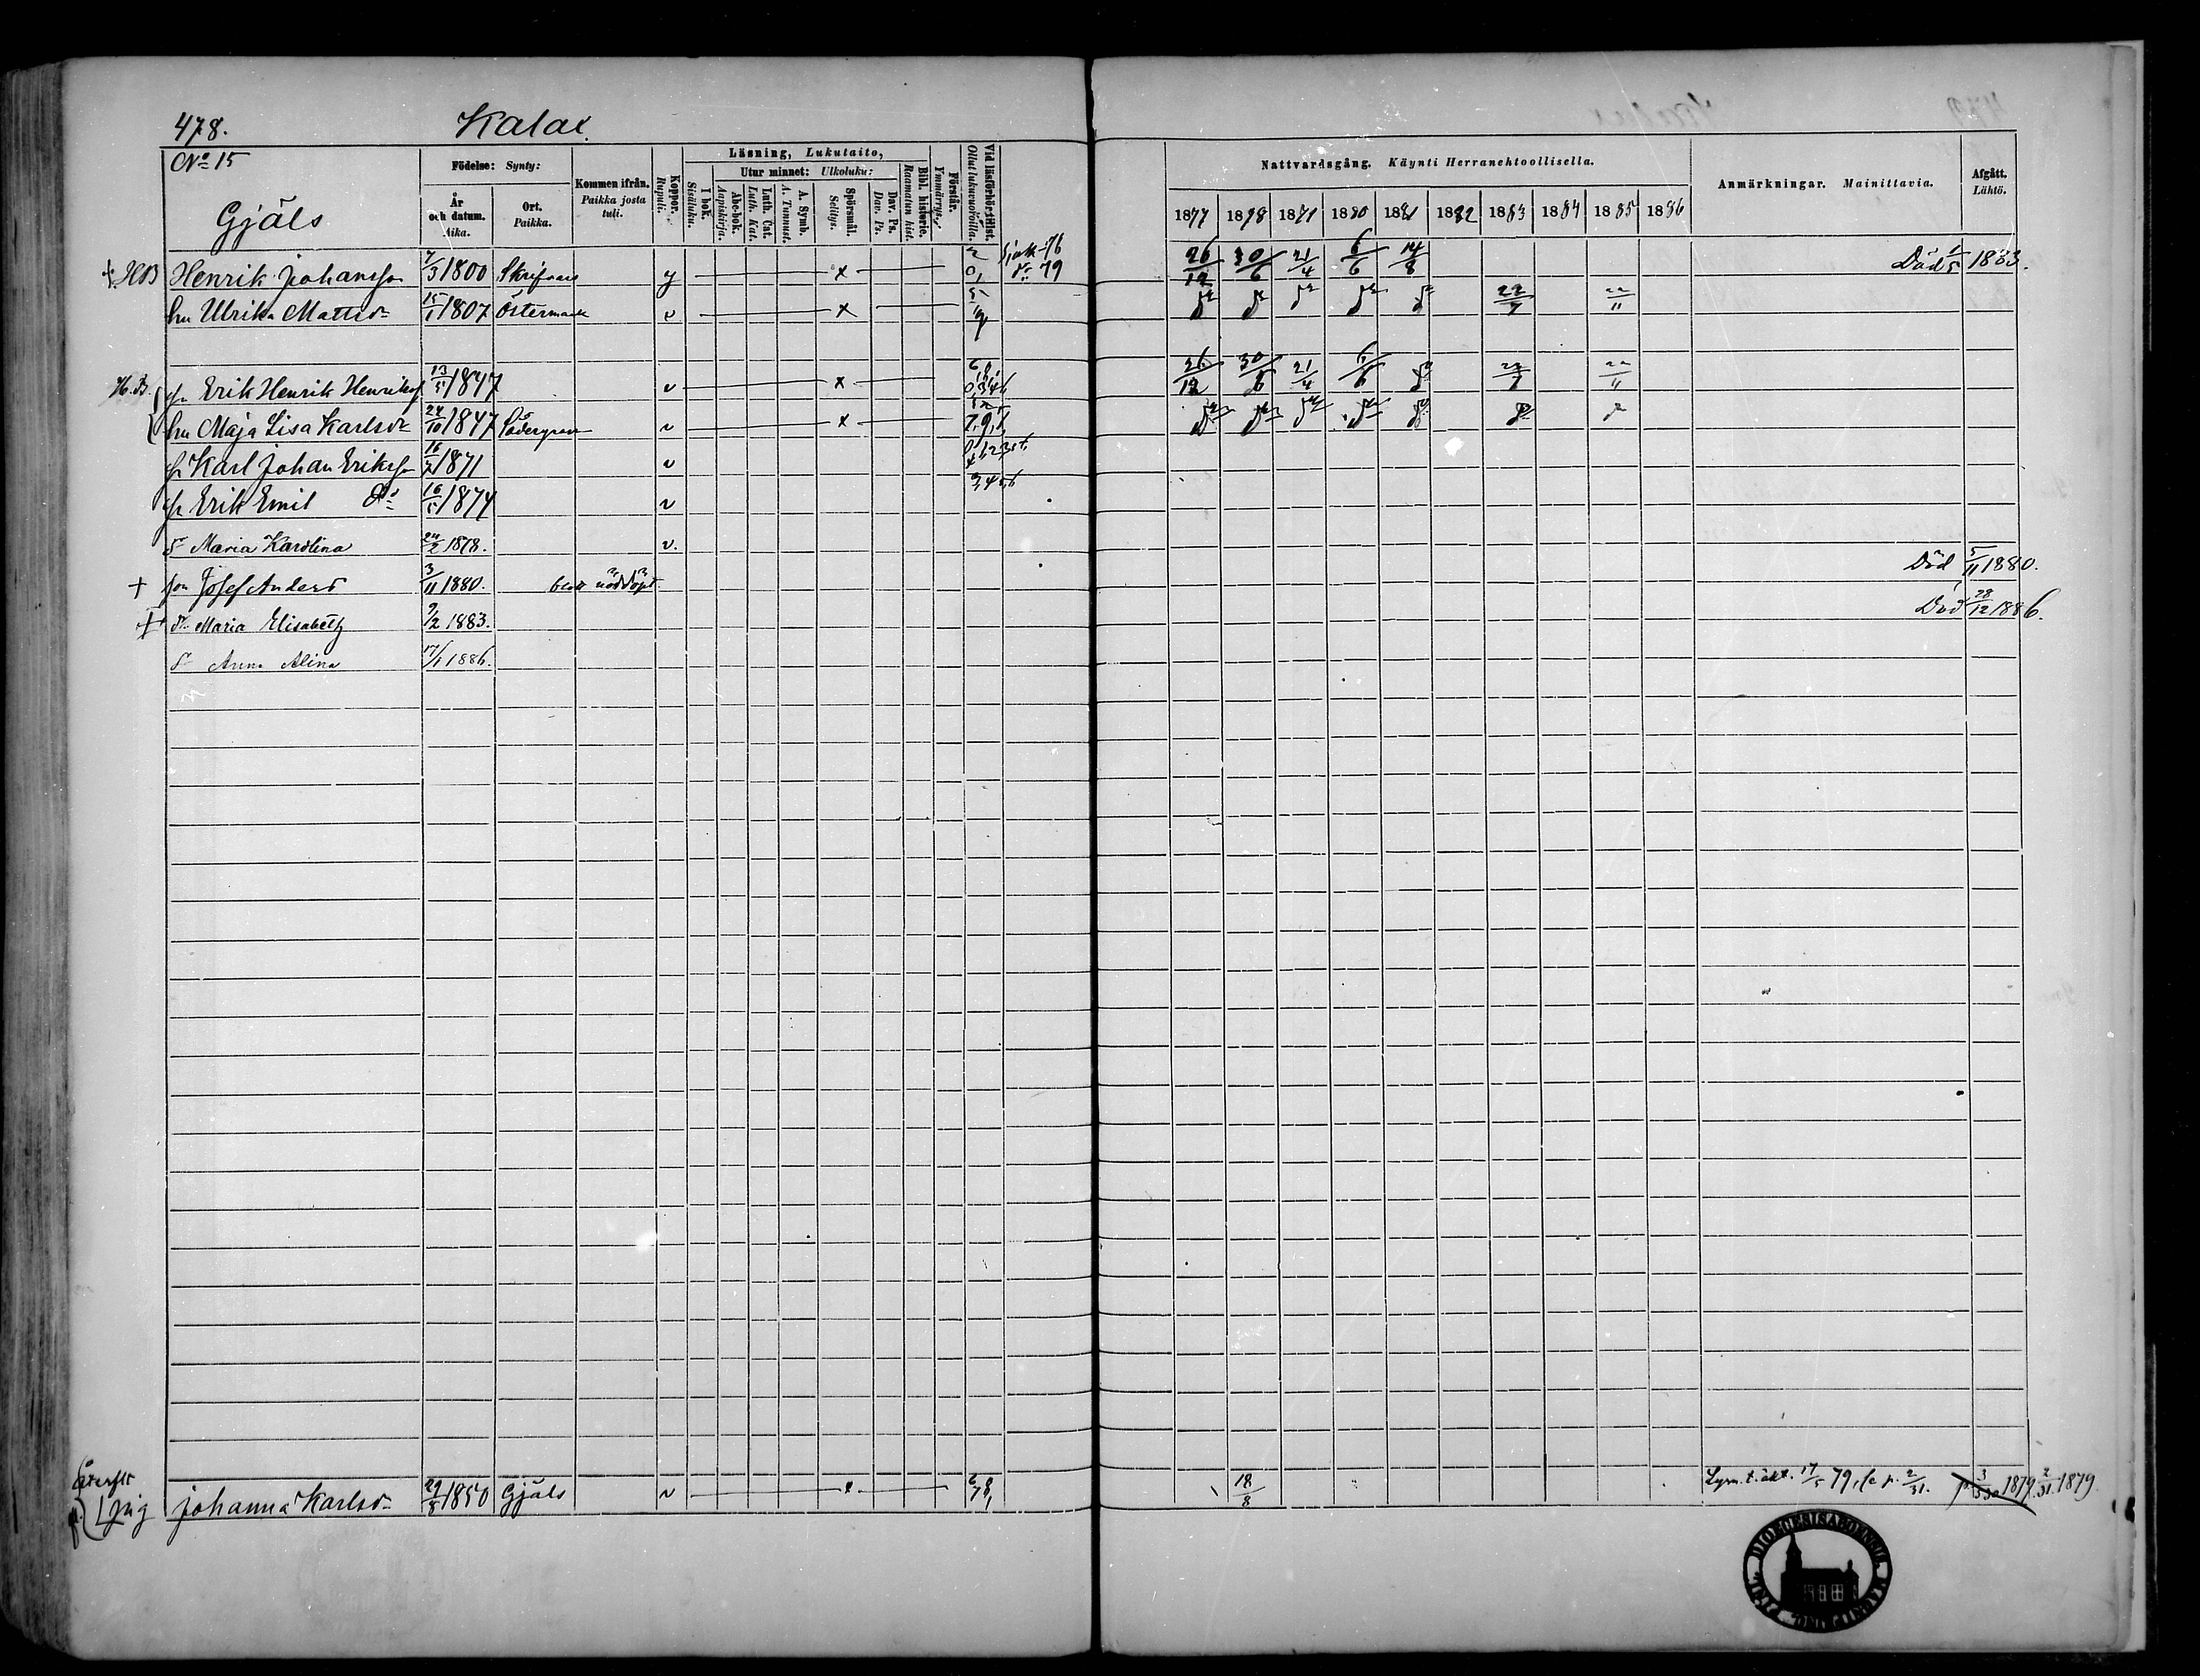 478. Kalax
No 15
Gjäls
Födelse: Synty:
År och datum. Aika.
Ort. Paikka.
Kommen ifrån. Paikka josta tuli.
Koppor. Rupuli.
Läsning, Lukutaito,
I bok. Sisäluku.
Utur minnet: Ulkoluku:
Abc-bok. Aapiskirja.
Luth. Cat. Luth. Kat.
A. Symb. A. Tunnust.
Spörsmål. Selitys.
Dav. Ps. Dav. Ps.
Bibl. historie. Raamatun hist.
Förstår. Ymmärrys.
Vid läsförhör tillst. Ollut lukuvuoroilla.
Nattvardsgång. Käynti Herranehtoollisella.
1877 1878 1879 1880 1881 1882 1883 1884 1885 1886
Anmärkningar. Mainittavia.
Afgått. Lähtö.
+ HB Henrik Johansson 7/3 1800 y x sjuk 76 d:o 79 26/12 30/6 21/4 6/6 14/8 Död 1883.
hu Ulrika Mattsdr 15/1 1807 Östermark v x 22/7 22/11
H.B. Erik Henrik Henriksson 13/5 1847 v x 26/12 30/6 21/4 6/6 22/7 22/11
hu Maja Lisa Karlsdr 24/10 1847 v x
Karl Johan Eriksson 16/7 1871 v
Erik Emil Do 16/5 1874 v 3,4,5,6
Maria Karolina 24/2 1878. v.
+ son Josef Anders 3/11 1880. blott nöddöpt. Död 5/11 1880.
+ dr Maria Elisabeth 9/2 1883. Död 28/12 1886.
Anna Alina 17/1 1886.
pig Johanna Karlsdr 29/8 1850 Gjäls v x 18/8 Lysn. t. äkt. 17/5 79, se p. 2/31. 1879. 2/31. 1879.